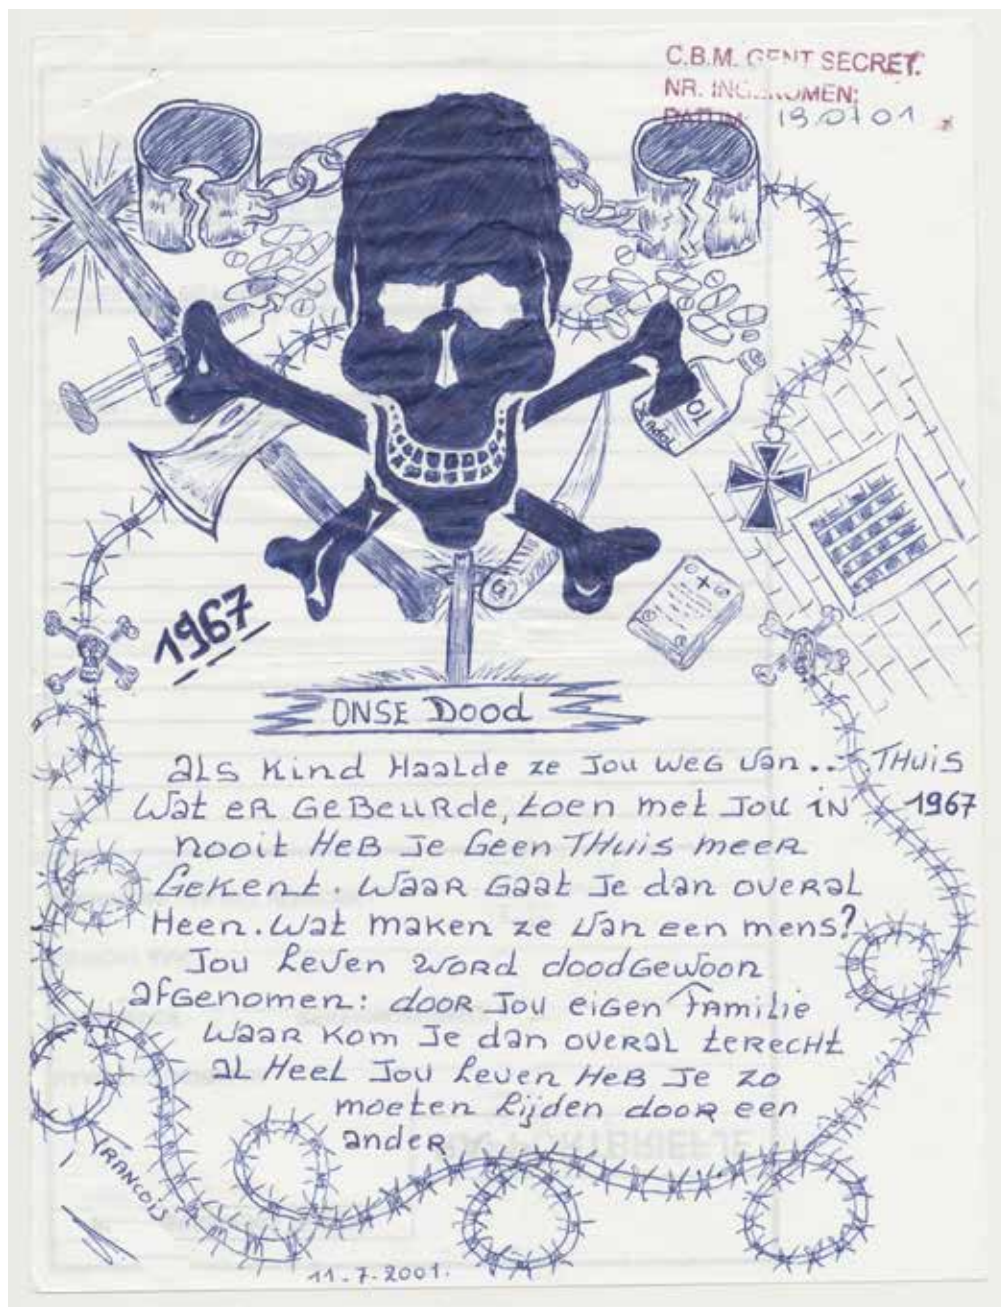 C.B.M. GENT SECRET.
NR. INGEKOMEN:
DATUM: 19.07.01
TOPAX
1967
ONSE Dood
als Kind Haalde ze Jou weg van .. THuis
Wat eR GeBeuRde, toen met Jou iN 1967
nooit HeB Je Geen THuis meeR
Gekent. WaaR Gaat Je dan oveRal
Heen. Wat maken ze Van een mens?
Jou Leven WoRd doodGewoon
afGenomen: dooR Jou eiGen Familie
WaaR Kom Je dan oveRal teRecHt
aL HeeL Jou Leven HeB Je zo
moeten Lijden dooR een
andeR
FRANCOIS
11.7.2001.